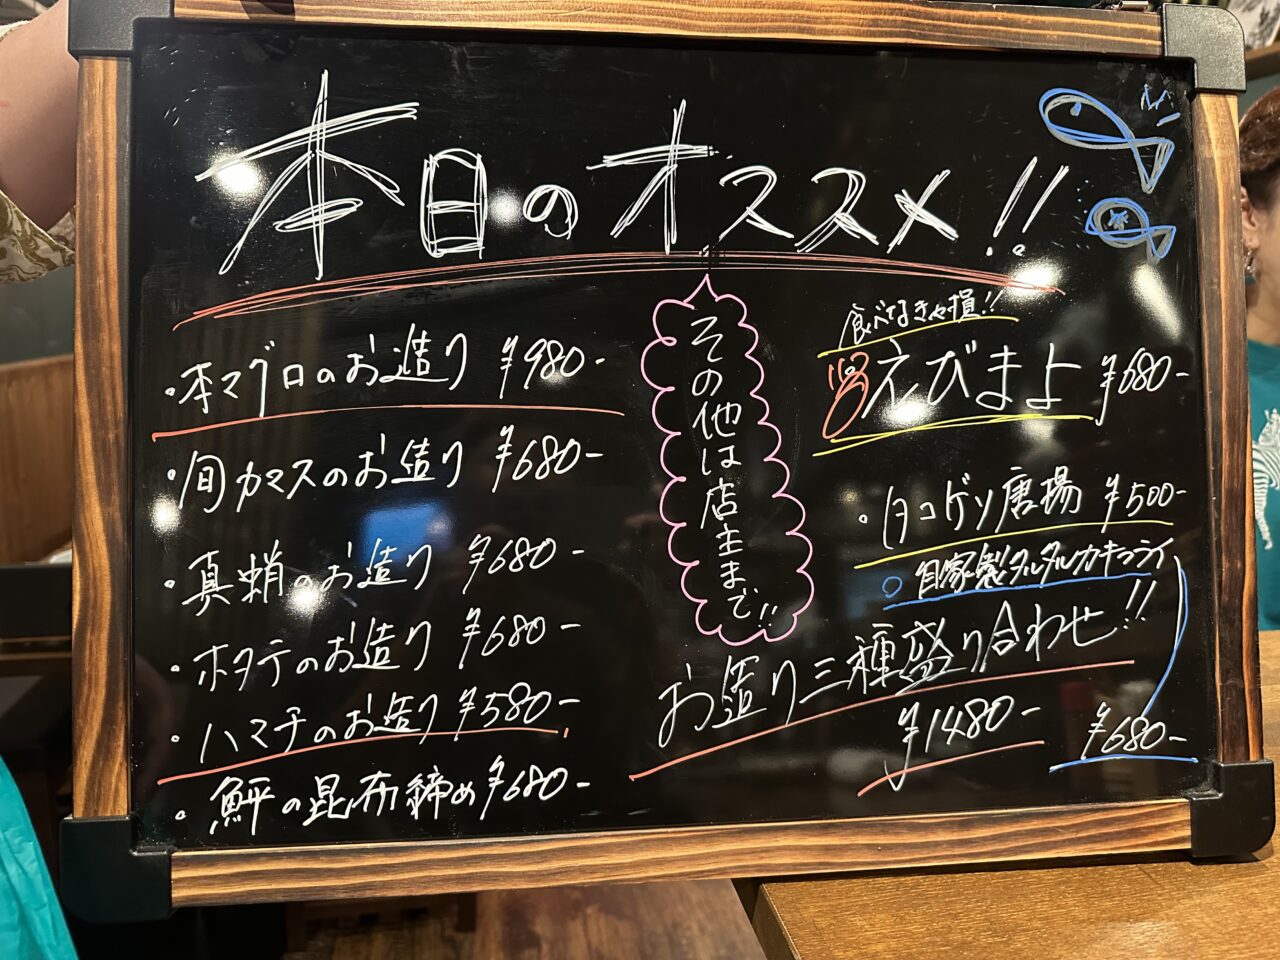 本日のオススメ!!
・本マグロのお造り ¥980-
・旬カマスのお造り ¥680-
・真蛸のお造り ¥680-
・ホタテのお造り ¥680-
・ハマチのお造り ¥580-
・鮃の昆布締め ¥680-
その他は店主まで!!
食べなきゃ損!!
えびまよ ¥680-
・タコゲソ唐揚 ¥500-
○自家製タルタルカキフライ
¥680-
お造り三種盛り合わせ!!
¥1480-